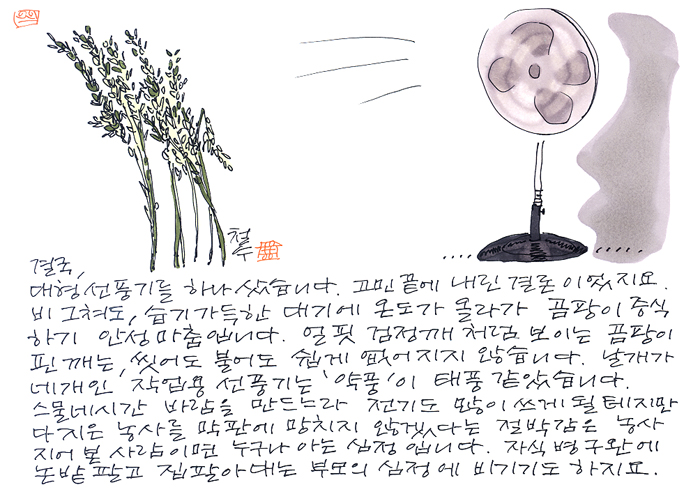 철수
결국,
대형선풍기를 하나 샀습니다. 고민끝에 내린 결론이었지요.
비 그쳐도, 습기가득한 대기에 온도가 올라가 곰팡이증식
하기 안성마춤입니다. 얼핏 검정깨처럼 보이는 곰팡이
핀 깨는, 씻어도 불어도 쉽게 없어지지 않습니다. 날개가
네개인 작업용 선풍기는 '약풍'이 태풍 같았습니다.
스물네시간 바람을 만드느라 전기도 많이 쓰게될테지만
다 지은 농사를 막판에 망치지 않겠다는 절박감은 농사
지어 본 사람이면 누구나 아는 심정 입니다. 자식병구완에
논밭팔고 집팔아대는 부모의 심정에 비기기도 하지요.